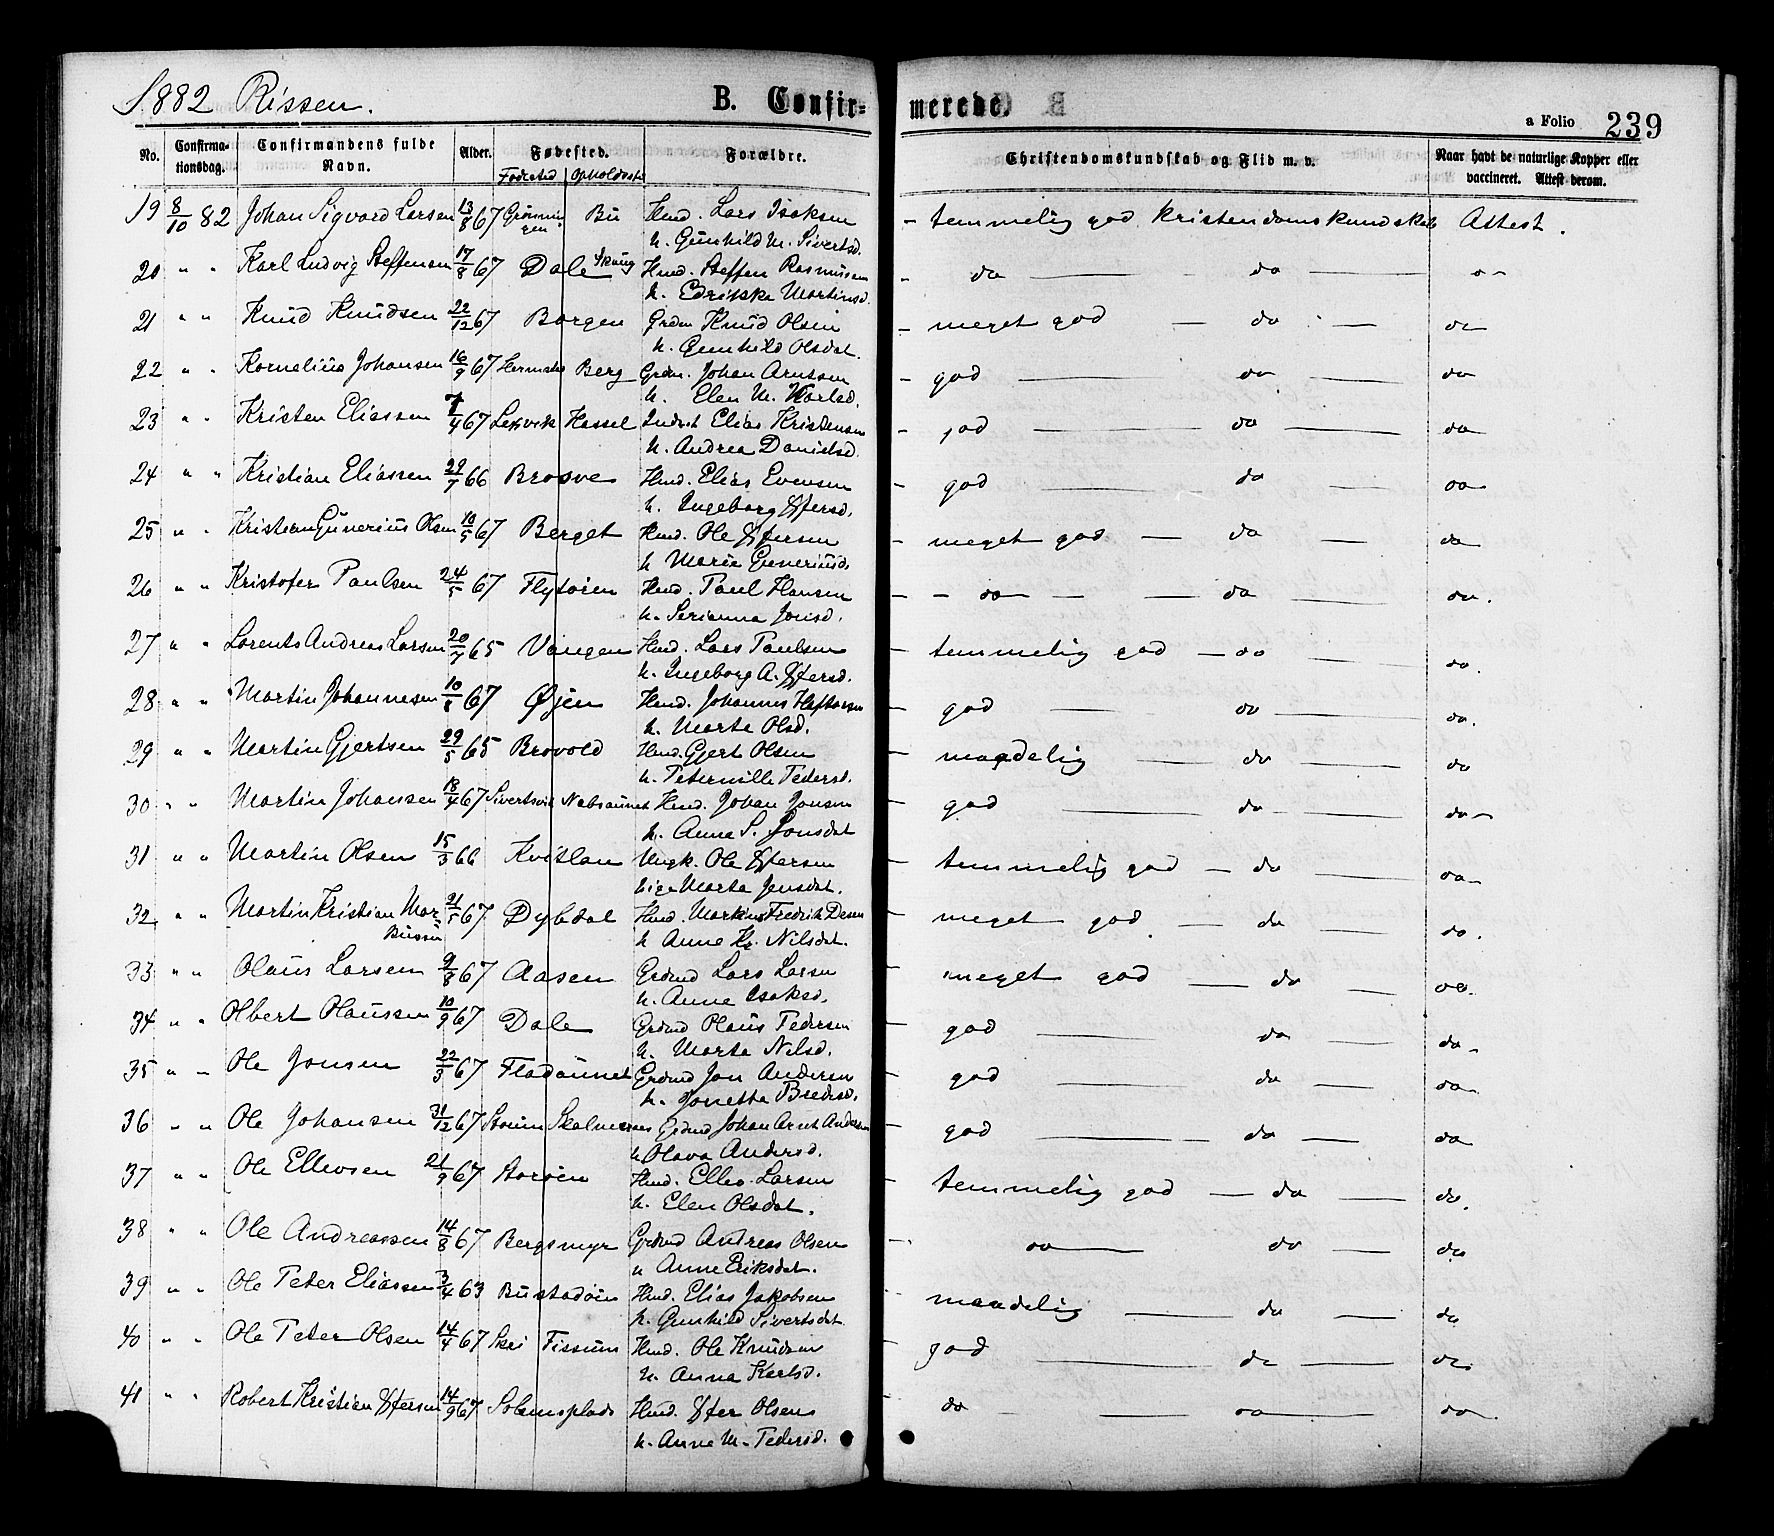 1882 Rissen.
B. Confir- merede.
a Folio 239
No. Confirma-tionsdag. Confirmandens fulde Navn. Alder. Fødested. Forældre. Christendomskundskab og Flid m. v. Naar havt de naturlige Kopper eller vaccineret. Attest derom.
Fødested Opholdssted
19 8/10 82 Johan Sigvard Larsen 13/8 67 Grønningen Bu Hmd. Lars Isaksen - temmelig god kristendomskundskab Attest.
h. Gunhild M. Sivertsd.
20 " " Karl Ludvig Steffensen 17/8 67 Dale Skaug Hmd. Steffen Rasmussen - do do do
h. Edrikke Martinsd.
21 " " Knud Knudsen 22/12 67 Borgen Grdm Knud Olsen - meget god - do - do
h. Gunhild Olsdat.
22 " " Kornelius Johansen 16/9 67 Berg Grdm. Johan Arntsen - god do do
h. Elen M. Karlsd.
23 " " Kristen Eliassen 7/4 67 Leksvik Hassel Inderst Elias Kristensen - god do do
h. Andrea Danielsd.
24 " " Kristian Eliassen 29/7 66 Brosve Hmd. Elias Evensen - god do do
h. Ingeborg Yffersd.
25 " " Kristian Gunerius Olsen 10/5 67 Berget Hmd. Ole Yffersen - meget god - do - do
h Marie Guneriusd.
26 " " Kristofer Paulsen 24/5 67 Flytøien Hmd. Paul Hansen - - do - do do.
h. Serianna Jonsd.
27 " " Lorents Andreas Larsen 20/7 65 Vangen Hmd. Lars Paulsen - temmelig god - do do.
h. Ingeborg A. Yffersd.
28 " " Martin Johannesen 10/ 67 Øjen Hmd. Johannes Heftorsen - god do do.
h. Marta Olsd.
29 " " Martin Gjertsen 29/5 65 Brovold Hmd. Gjert Olsen - maadelig do do
h. Peternille Pedersd.
30 " " Martin Johansen 18/4 67 Sivertsvik Næbsaunet Hmd. Johan Jonsen - god do do
h. Anne S. Jonsdat
31 " " Martin Olsen 15/3 66 Kvitlan Ungk. Ole Yffersen - temmelig god - do do
Pige Marta Jensdat.
32 " " Martin Kristian Mar- 31/5 67 Dybdal Hmd. Markus Fredrik - meget god - do do.
h Anne Kr. Nilsdat.
33 " " Olaus Larsen 9/8 67 Aasen Grdmd Lars Larsen - meget god - do do.
h. Anne Isaksd.
34 " " Olbert Olaussen 10/9 67 Dale Grdmd Olaus Pedersen - god do do
h. Marta Nilsd.
35 " " Ole Jonsen 22/3 67 Fladaunet Grdmd Jon Andersen - god do do
h. Jonetta Bredesd.
36 " " Ole Johansen 31/12 67 Grdmd Johan Arnt Andersen - god do do
h Olava Andersd.
37 " " Ole Ellevsen 21/9 67 Storøien Hmd. Ellev Larsen - temmelig god - do do.
h. Elen Olsdat.
38 " " Ole Andreassen 14/8 67 Bergsmyr Grdmd Andreas Olsen do do do
h Anne Eriksdat.
39 " " Ole Peter Eliassen 3/4 63 Bustadøien Hmd. Elias Jakobsen - maadelig do do
h. Gunhild Sivertsdat
40 " " Ole Peter Olsen 14/4 67 Skei Fissum Hmd. Ole Knudsen - god do do
h. Anna Karlsd.
41 " " Robert Kristian Yffersen 14/9 67 Solemsplads Hmd. Yffer Olsen do do do
h. Anne M. Pedersd.